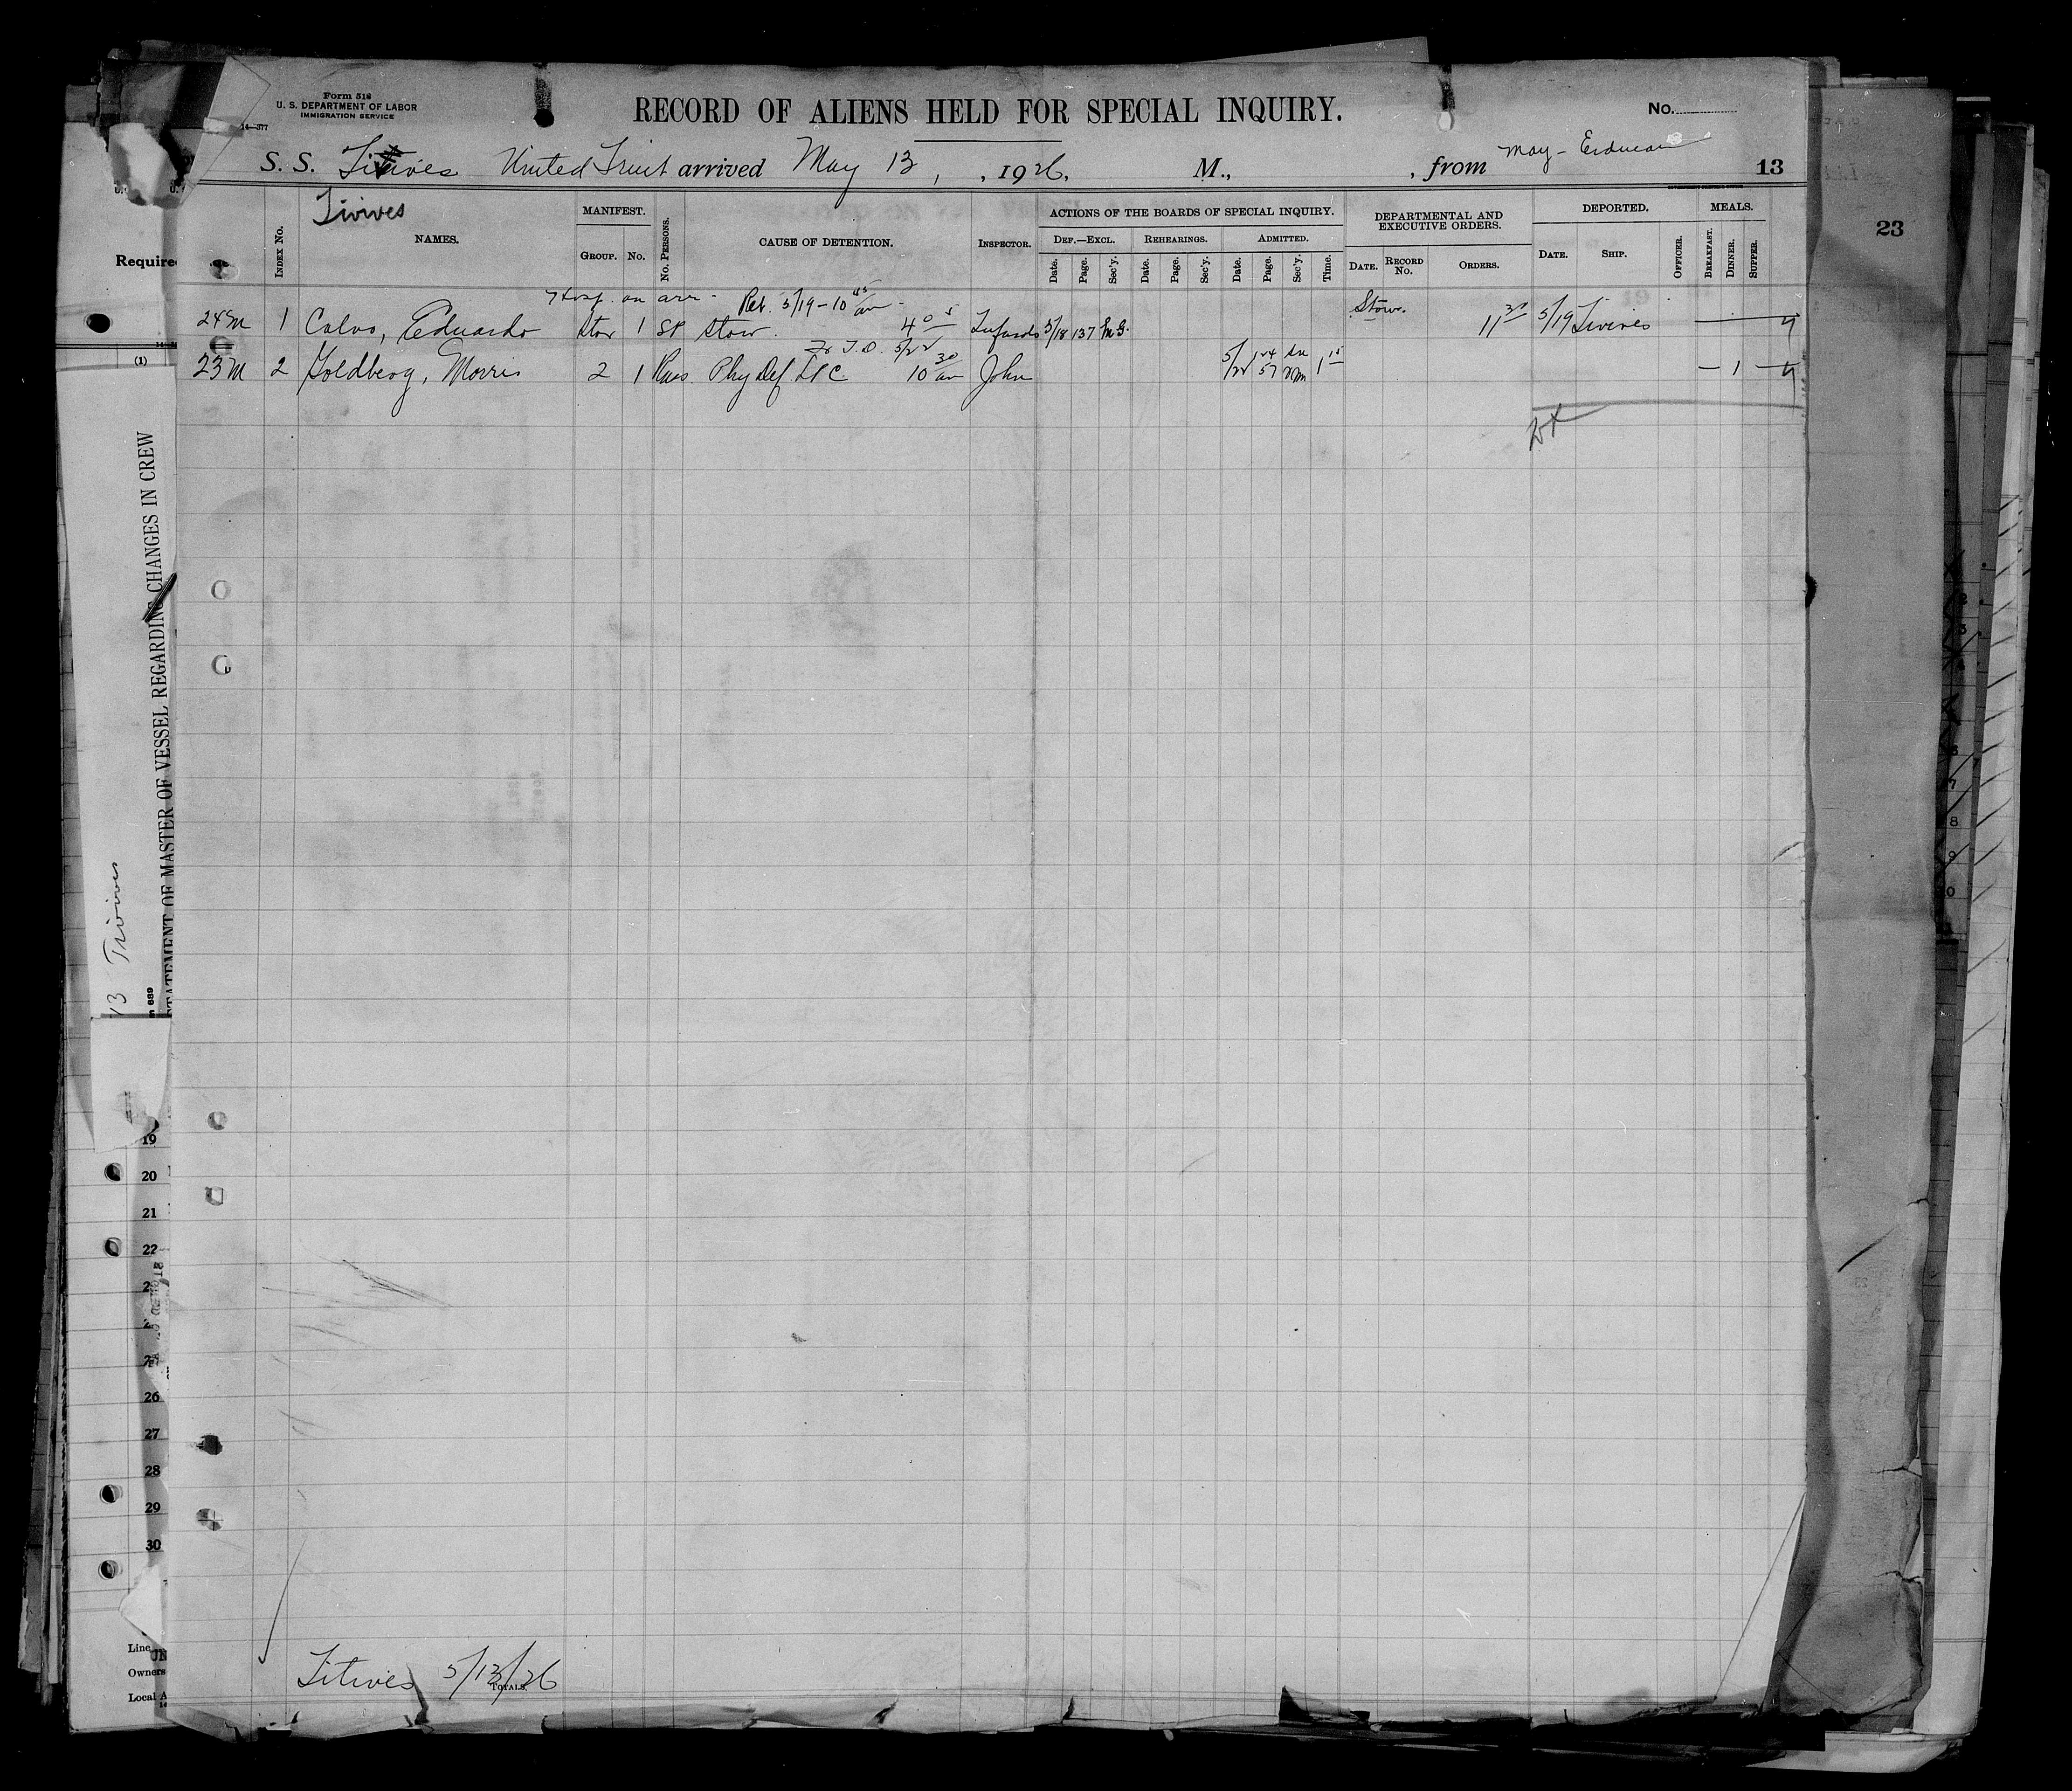 Form 518
U. S. DEPARTMENT OF LABOR
IMMIGRATION SERVICE
14—377
RECORD OF ALIENS HELD FOR SPECIAL INQUIRY.
No.
S. S. United Fruit arrived May 13, , 1926, M., , from May - 13
Tivives
INDEX No.
NAMES.
MANIFEST.
GROUP. No.
No. PERSONS.
CAUSE OF DETENTION.
INSPECTOR.
ACTIONS OF THE BOARDS OF SPECIAL INQUIRY.
DEF.—EXCL. REHEARINGS. ADMITTED.
Date. Page. Sec'y. Date. Page. Sec'y. Date. Page. Sec'y. Time.
DEPARTMENTAL AND EXECUTIVE ORDERS.
DATE. RECORD No. ORDERS.
DEPORTED.
DATE. SHIP. OFFICER.
MEALS.
BREAKFAST. DINNER. SUPPER.
Hosp. on arr - 5/19 - 10 45 am Stow.
24 M 1 Calvo, Eduardo Stow 1 SP Stow. 4 05 5/18 137 11 30 5/19 Tivives 4
5/22
23 M 2 Goldberg, Morris 2 1 Russ. Phy Def. LPC 10 30 am John 5/22 1 15 — 1 — 4
Titives 5/13/26
TOTALS.
23
Required
(1)
STATEMENT OF MASTER OF VESSEL REGARDING CHANGES IN CREW
689
13 Tivives
19
20
21
22
26
27
28
29
30
Line
Owners
Local A